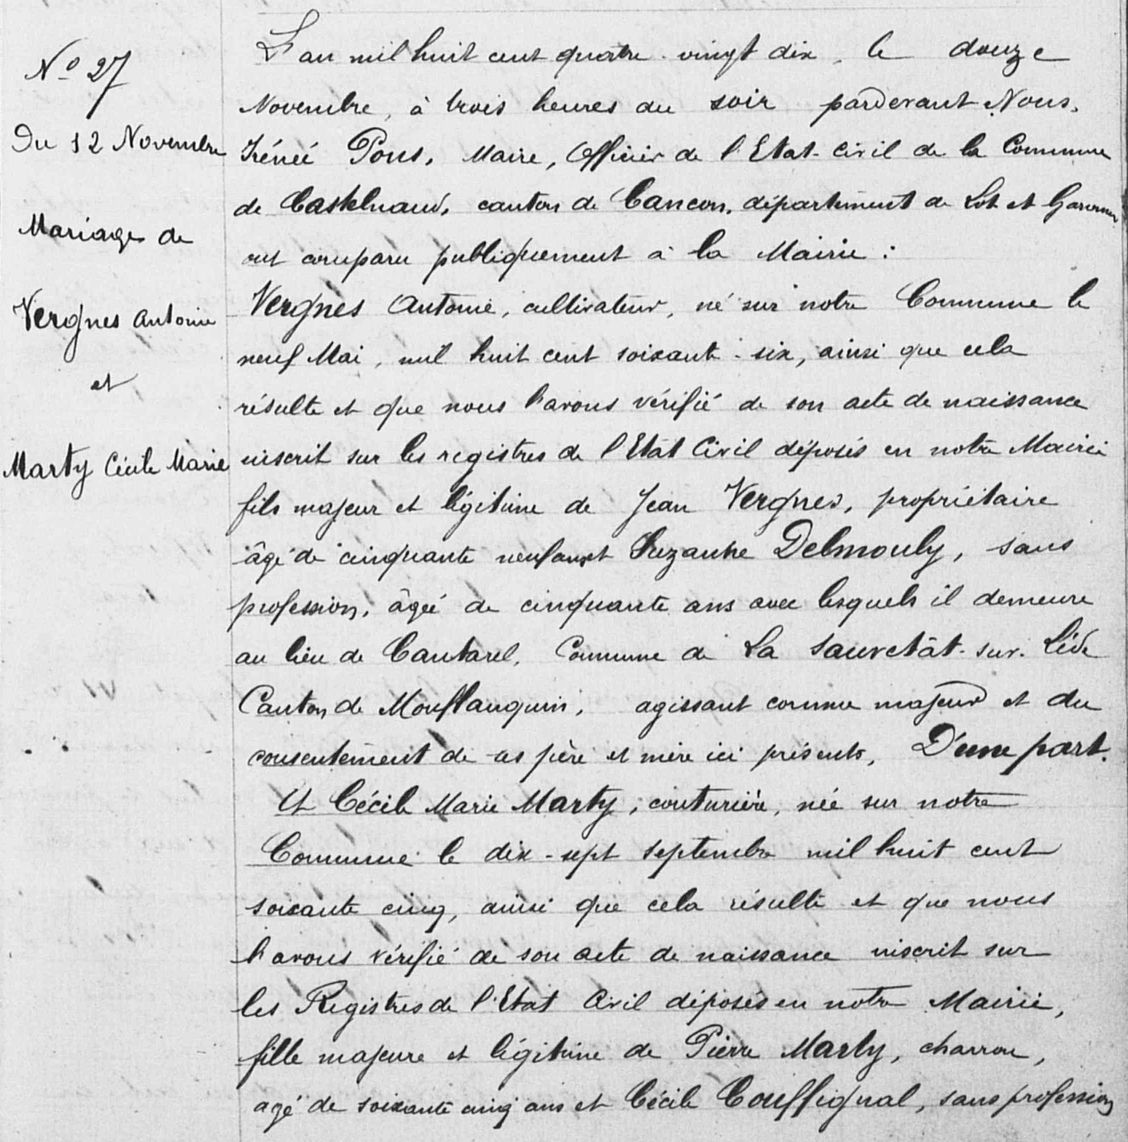 N° 27
Du 12 Novembre
Mariage de
Vergnes Antoine
et
Marty Cécile Marie
L'an mil huit cent quatre-vingt dix, le douze
Novembre, à trois heures du soir pardevant Nous,
Irénée Pons, Maire, Officier de l'Etat-civil de la Commune
de Castelnaud, canton de Cancon, département de Lot et Garonne
ont comparu publiquement à la Mairie :
Vergnes Antoine, cultivateur, né sur notre Commune le
neuf Mai, mil huit cent soixante-six, ainsi que cela
résulte et que nous l'avons vérifié de son acte de naissance
inscrit sur les registres de l'Etat Civil déposés en notre Mairie
fils majeur et légitime de Jean Vergnes, propriétaire
âgé de cinquante neuf ans et Suzanne Delmouly, sans
profession, âgée de cinquante ans avec lesquels il demeure
au lieu de Cantarel, Commune de La Sauvetat-sur-Lède
Canton de Monflanquin, agissant comme majeur et du
consentement de ses père et mère ici présents, D'une part.
Et Cécile Marie Marty, couturière, née sur notre
Commune le dix-sept septembre mil huit cent
soixante cinq, ainsi que cela résulte et que nous
l'avons vérifié de son acte de naissance inscrit sur
les Registres de l'Etat Civil déposés en notre Mairie,
fille majeure et légitime de Pierre Marty, charron,
agé de soixante cinq ans et Cécile Couffignal, sans profession